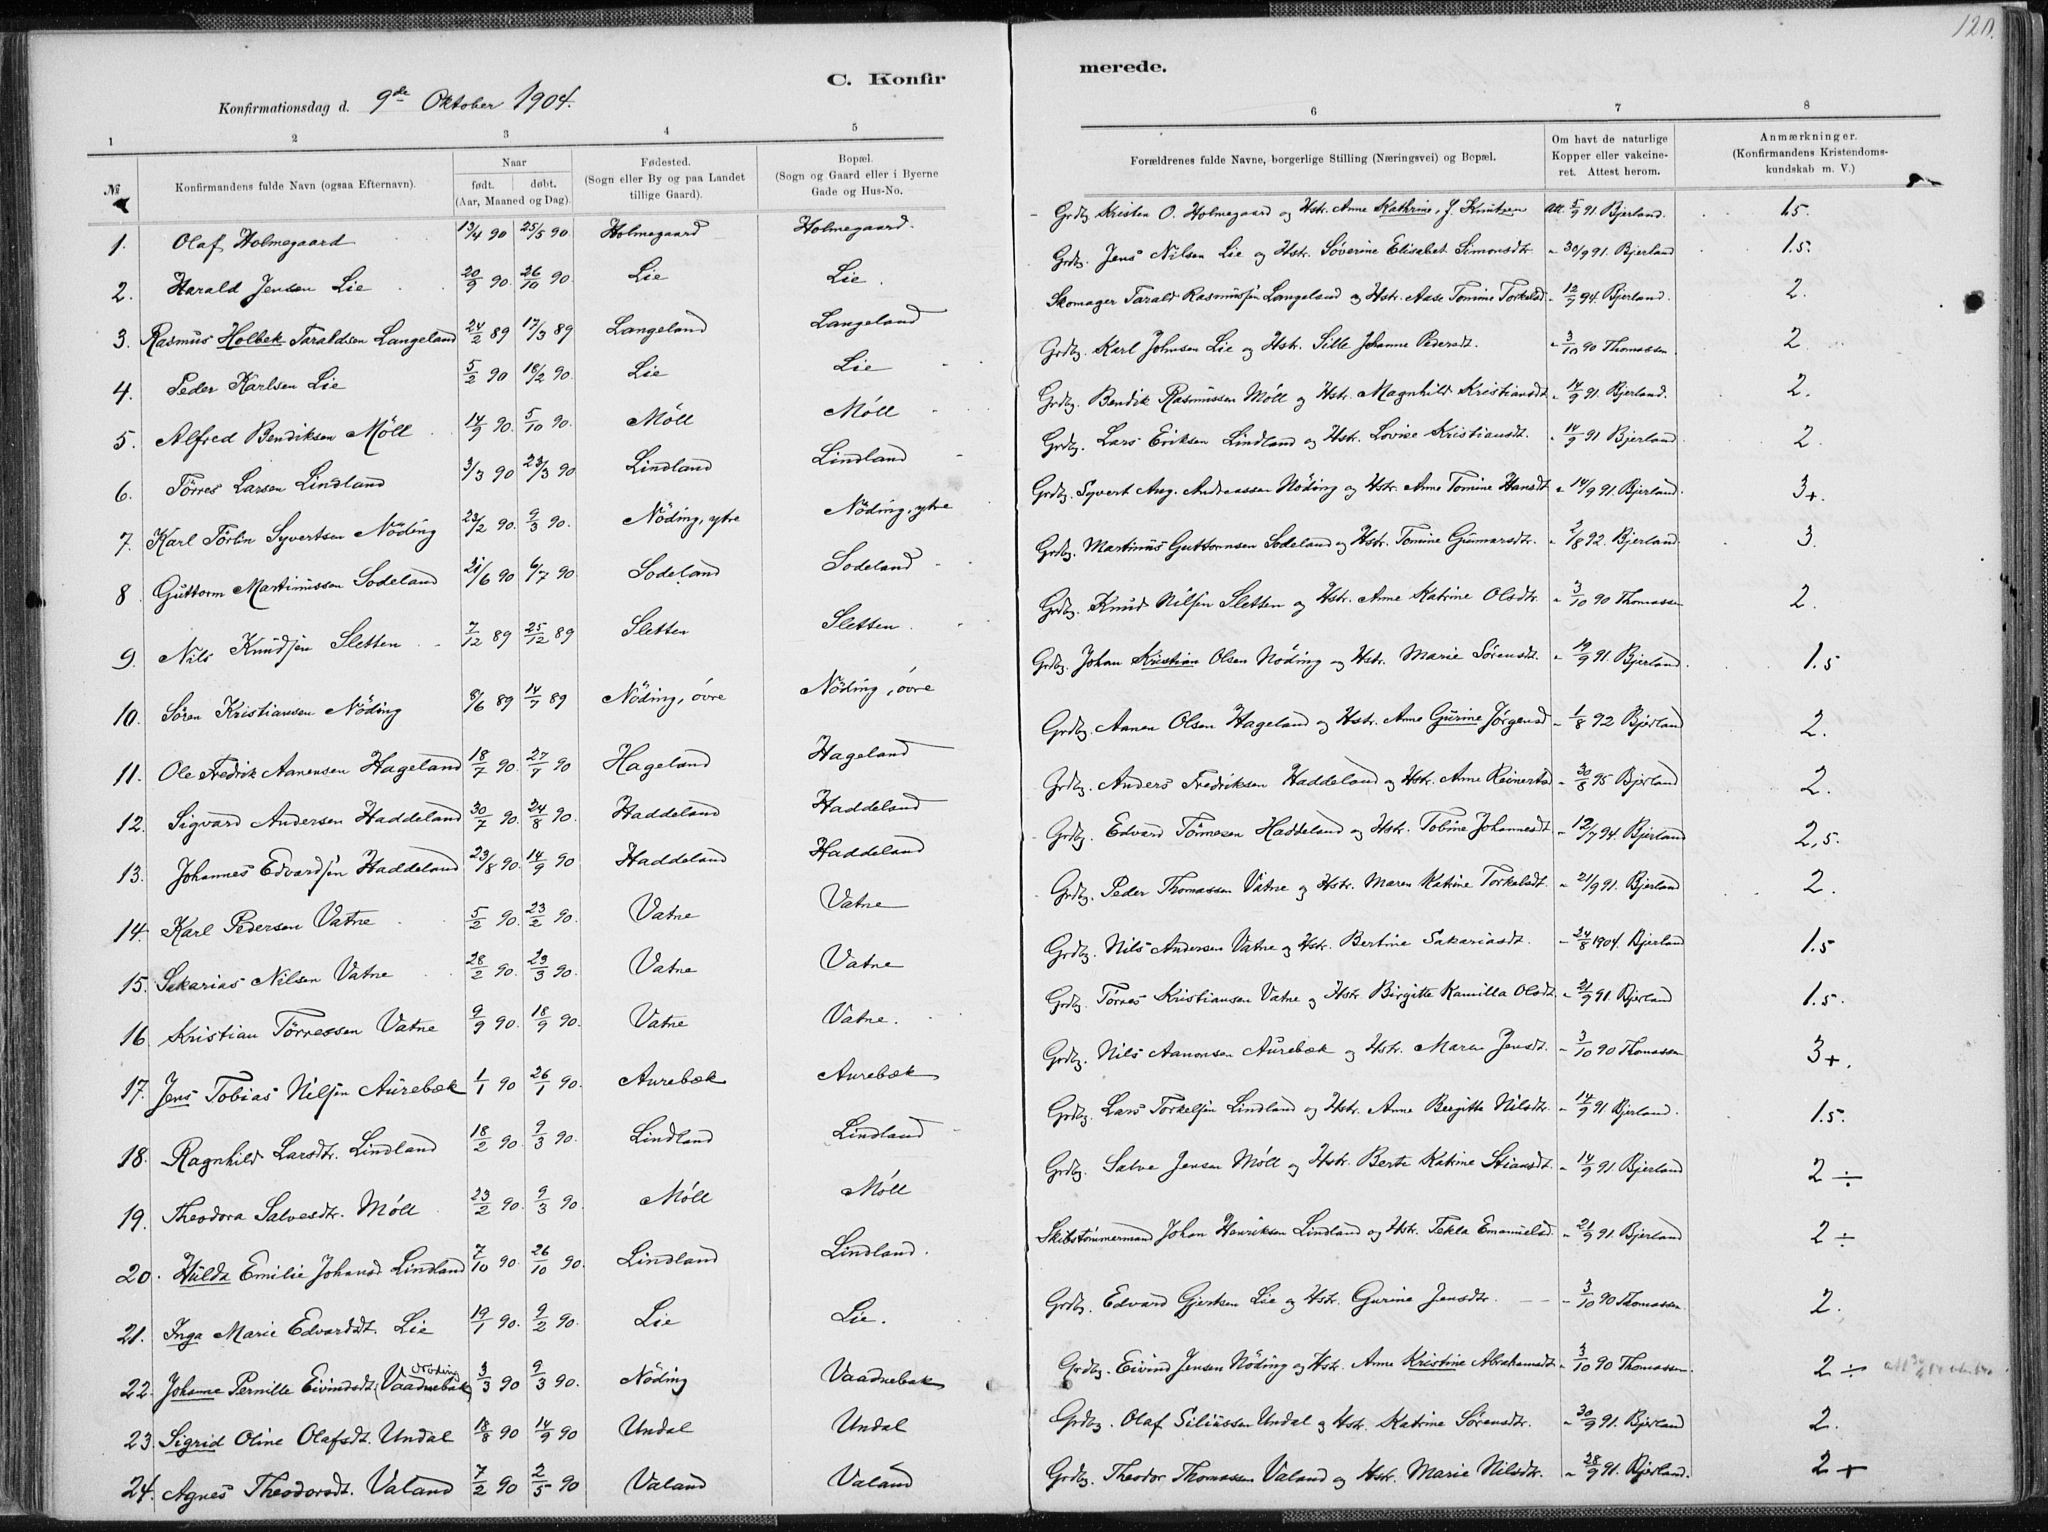 120.
C. Konfirmerede.
Konfirmationsdag d. 9de Oktober 1904.
1 2 3 4 5 6 7 8
№
Konfirmandens fulde Navn (ogsaa Efternavn).
Naar
født. døbt.
(Aar, Maaned og Dag).
Fødested.
(Sogn eller By og paa Landet
tillige Gaard).
Bopæl.
(Sogn og Gaard eller i Byerne
Gade og Hus-No.
Forældrenes fulde Navne, borgerlige Stilling (Næringsvei) og Bopæl.
Om havt de naturlige
Kopper eller vakcine-
ret. Attest herom.
Anmærkninger.
(Konfirmandens Kristendoms-
kundskab m. V.)
1. Olaf Holmegaard 13/4 90 25/5 90 Holmegaard Holmegaard. Grdbg. Kristen O. Holmegaard og Hstr. Anne Kathrine, f. Knutsen Att. 5/9 91 Bjerland. 1.5
2. Harald Jensen Lie 20/9 90 26/10 90 Lie Lie. Grdbg. Jens Nilsen Lie og Hstr. Søverine Elisabet Simonsdtr. " 30/9 91. Bjerland 1.5.
3. Rasmus Holbek Taraldsen Langeland 24/2 89 17/3 89 Langeland Langeland Skomager Tarald Rasmussen Langeland og Hstr. Aase Tomine Torkelsd. " 12/7 94. Bjerland. 2.
4. Peder Karlsen Lie 5/2 90 16/2 90. Lie Lie Grdbg. Karl Johnsen Lie og Hstr. Sille Johanne Pedersdt. " 3/10 90 Thomassen 2
5. Alfred Bendiksen Möll 14/9 90. 5/10 90. Möll Möll Grdbg. Bendik Rasmussen Möll og Hstr. Magnhild Kristiansdt. " 14/9 91. Bjerland. 2.
6. Törres Larsen Lindland 3/3 90 23/3 90 Lindland Lindland Grdbg. Lars Eriksen Lindland og Hstr. Lovise Kristiansdt. " 14/9 91 Bjerland 2.
7. Karl Törlin Syvertsen Nöding 23/2 90. 9/3 90. Nöding, ytre Nöding, ytre Grdbg. Syvert Aug. Andreassen Nöding og Hstr. Anne Tomine Hansdt. " 14/9 91. Bjerland. 3+.
8 Guttorm Martinussen Sodeland 21/6 90 6/7 90 Sodeland Sodeland Grdbg. Martinus Guttormsen Sodeland og Hstr. Tomine Gunnarsdtr. " 2/8 92. Bjerland. 3.
9. Nils Knudsen Sletten 7/12 89 25/12 89 Sletten Sletten. Grdbg. Knud Nilsen Sletten og Hstr. Anne Katrine Olsdtr. " 3/10 90 Thomassen 2.
10. Sören Kristiansen Nöding 8/6 89 14/7 89 Nöding, övre Nöding, övre Grdbg. Johan Kristian Olsen Nöding og Hstr. Marie Sörensdt. " 19/9 91. Bjerland. 1.5
11. Ole Fredrik Aanensen Hageland 18/7 90. 27/7 90 Hageland Hageland Grdbg. Aanen Olsen Hageland og Hstr. Anne Gurine Jørgensd. " 1/8 92 Bjerland 2.
12. Sigvard Andersen Haddeland 30/7 90. 24/8 90. Haddeland Haddeland Grdbg. Anders Fredriksen Haddeland og Hstr. Anne Reinertsd. " 30/8 95 Bjerland 2.
13. Johannes Edvardsen Haddeland 23/8 90. 14/9 90 Haddeland Haddeland Grdbg. Edvard Tönnesen Haddeland og Hstr. Tobine Johannesdt. " 12/7 94. Bjerland 2,5.
14. Karl Pedersen Vatne 5/2 90. 23/2 90. Vatne Vatne Grdbg. Peder Thomassen Vatne og Hstr. Maren Katrine Torkelsdt. " 21/9 91. Bjerland 2.
15. Sakarias Nilsen Vatne 28/2 90. 23/3 90. Vatne Vatne Grdbg. Nils Andersen Vatne og Hstr. Bertine Sakariasdt. " 24/8 1904. Bjerland 1.5
16. Kristian Törressen Vatne 9/9 90. 18/9 90. Vatne Vatne. Grdbg. Törres Kristiansen Vatne og Hstr. Birgitte Kamilla Olsdt. " 21/9 91. Bjerland 1.5.
17. Jens Tobias Nilsen Aurebæk 1/1 90 26/1 90. Aurebæk Aurebæk Grdbg. Nils Aanonsen Aurebæk og Hstr. Maren Jensdt. " 3/10 90 Thomassen 3+.
18. Ragnhild Larsdtr. Lindland 18/2 90. 9/3 90. Lindland Lindland Grdbg. Lars Torkelsen Lindland og Hstr. Anne Bergitte Nilsdtr. " 14/9 91 Bjerland. 1.5.
19. Theodora Salvesdtr. Möll 23/2 90. 9/3 90. Möll Möll Grdbg. Salve Jensen Möll og Hstr. Berte Katrine Stiansdt. " 14/9 91. Bjerland 2 ÷
20. Hulda Emilie Johansd. Lindland 7/10 90. 26/10 90. Lindland Lindland. Skibstömmermand Johan Henriksen Lindland og Hstr. Tekla Emanuelsd. " 21/9 91. Bjerland 2 ÷
21. Inga Marie Edvardsdt. Lie 19/1 90. 9/2 90. Lie Lie. Grdbg. Edvard Gjertsen Lie og Hstr. Gurine Jensdtr. " 3/10 90 Thomassen. 2.
22. Johanne Pernille Eivindsdt. (Vaadnebæk) Nöding 3/3 90 9/3 90. Nöding Vaadnebæk Grdbg. Eivind Jensen Nöding og Hstr. Anne Kristine Abrahamsdt. " 3/10 90 Thomassen. 2 ÷
23. Sigrid Oline Olafsdt. Undal 18/8 90 14/9 90 Undal Undal Grdbg. Olaf Siliussen Undal og Hstr. Katrine Sörensdtr. " 30/9 91. Bjerland 2.
24. Agnes Theodorsdt. Valand 7/2 90 2/5 90 Valand Valand Grdbg. Theodor Thomassen Valand og Hstr. Marie Nilsdtr. " 28/9 91. Bjerland. 2 +